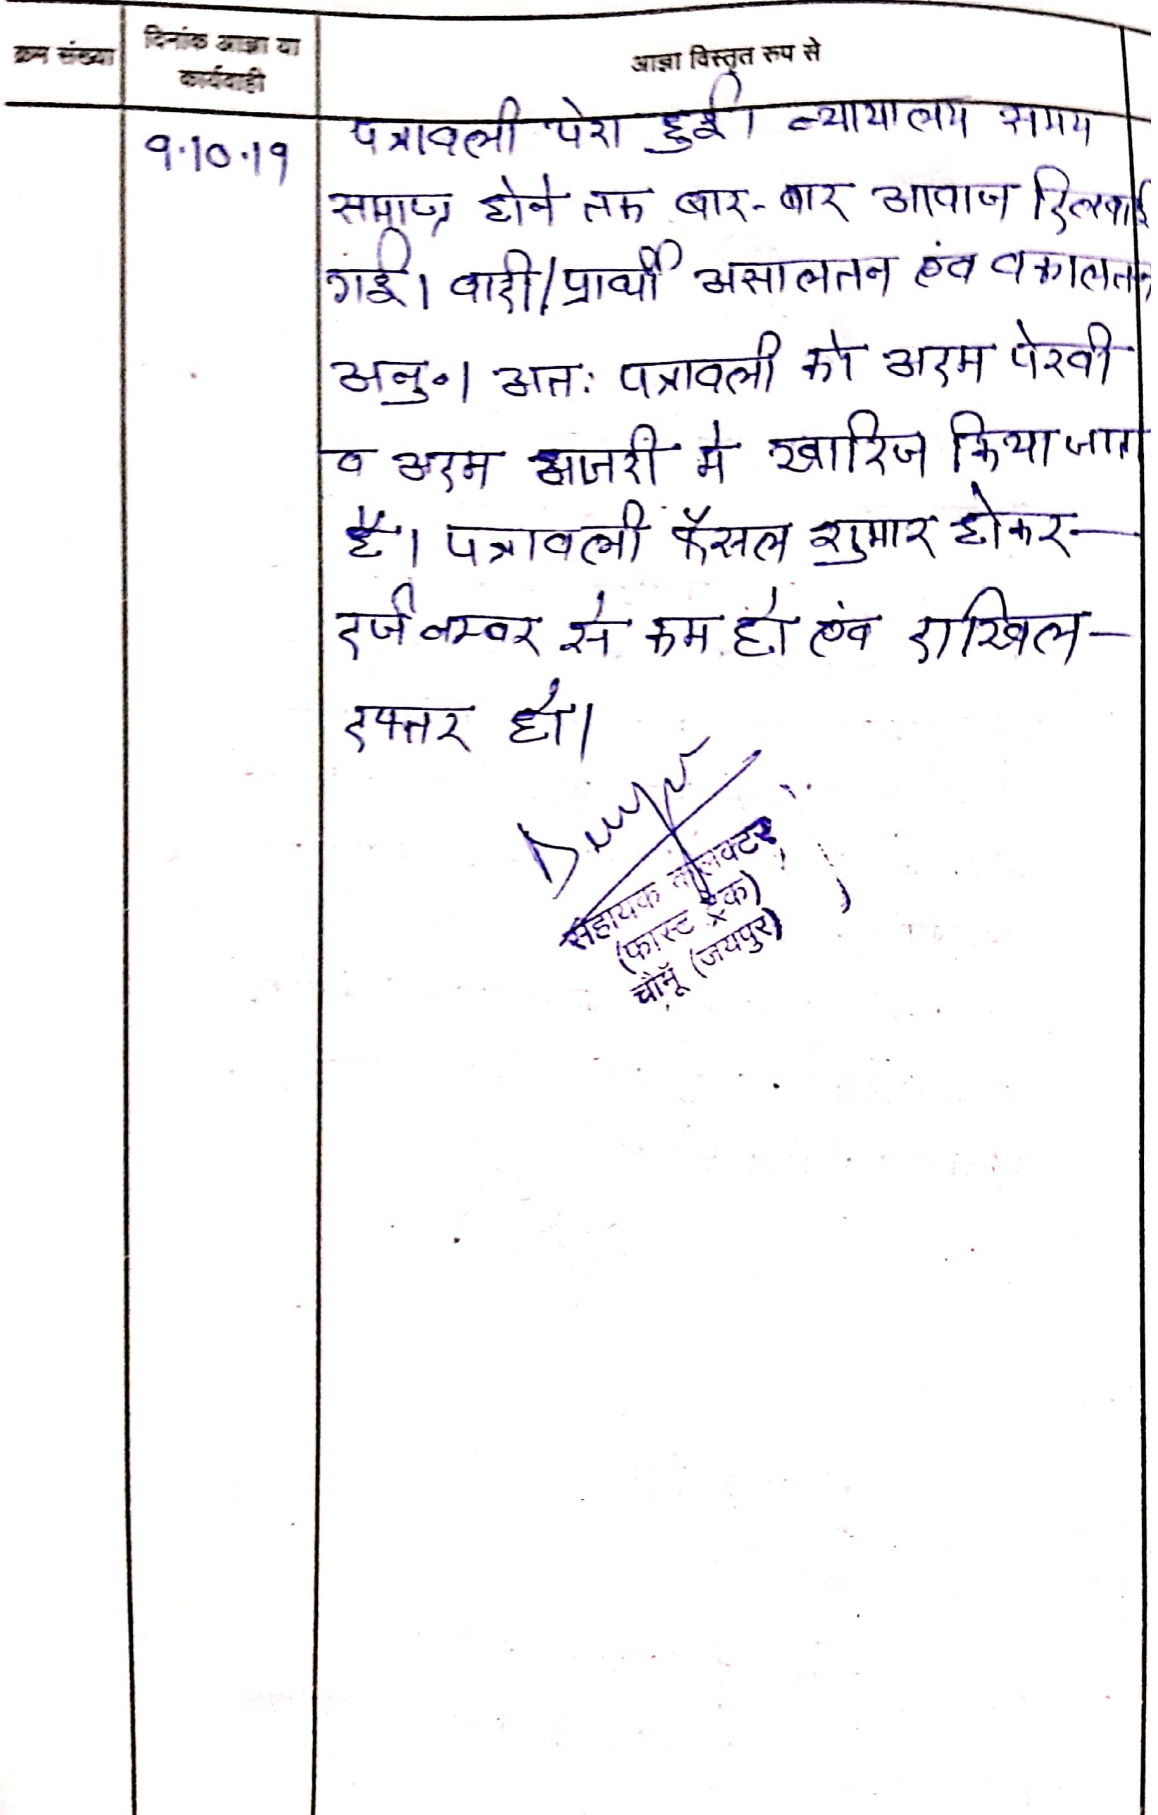 क्रम संख्या
दिनांक आज्ञा या
कार्यवाही
आज्ञा विस्तृत रूप से
9.10.19
पत्रावली पेश हुई। न्यायालय समय
समाप्त होने तक बार-बार आवाज दिलवाई
गई। वादी/प्रार्थी असालतन एंव वकालतन
अनु०। अतः पत्रावली को अदम पेरवी
व अदम हाजरी मे खारिज किया जाता
है। पत्रावली फैसल शुमार होकर-
दर्ज नम्बर से कम हो एंव दाखिल-
दफ्तर हो।
सहायक कलक्टर
(फास्ट ट्रेक)
चौमूँ (जयपुर)